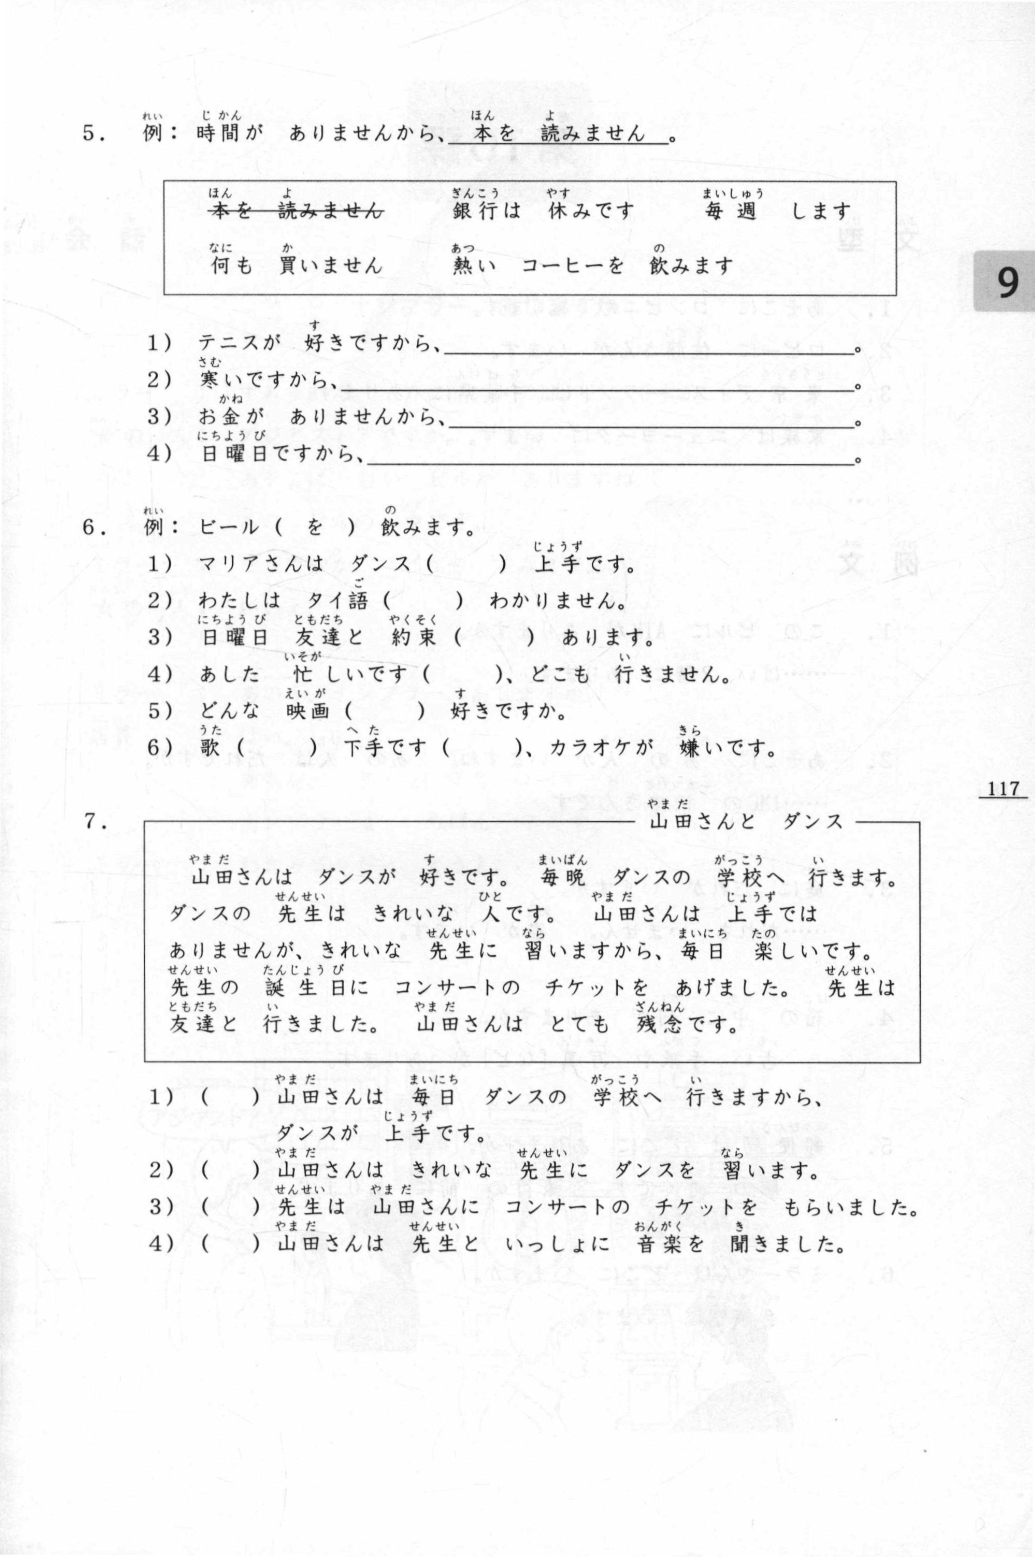 5． 例： 時間が ありませんから、 本を 読みません 。
本を 読みません 銀行は 休みです 毎週 します
何も 買いません 熱い コーヒーを 飲みます
1） テニスが 好きですから、＿＿＿＿＿＿＿＿＿＿。
2） 寒いですから、＿＿＿＿＿＿＿＿＿＿。
3） お金が ありませんから、＿＿＿＿＿＿＿＿＿＿。
4） 日曜日ですから、＿＿＿＿＿＿＿＿＿＿。
9
6． 例： ビール（ を ）飲みます。
1） マリアさんは ダンス（ ）上手です。
2） わたしは タイ語（ ）わかりません。
3） 日曜日 友達と 約束（ ）あります。
4） あした 忙しいです（ ）、どこも 行きません。
5） どんな 映画（ ）好きですか。
6） 歌（ ）下手です（ ）、カラオケが 嫌いです。
117
7．
山田さんと ダンス
山田さんは ダンスが 好きです。 毎晩 ダンスの 学校へ 行きます。
ダンスの 先生は きれいな 人です。 山田さんは 上手では
ありませんが、きれいな 先生に 習いますから、毎日 楽しいです。
先生の 誕生日に コンサートの チケットを あげました。 先生は
友達と 行きました。 山田さんは とても 残念です。
1） （ ）山田さんは 毎日 ダンスの 学校へ 行きますから、
ダンスが 上手です。
2） （ ）山田さんは きれいな 先生に ダンスを 習います。
3） （ ）先生は 山田さんに コンサートの チケットを もらいました。
4） （ ）山田さんは 先生と いっしょに 音楽を 聞きました。